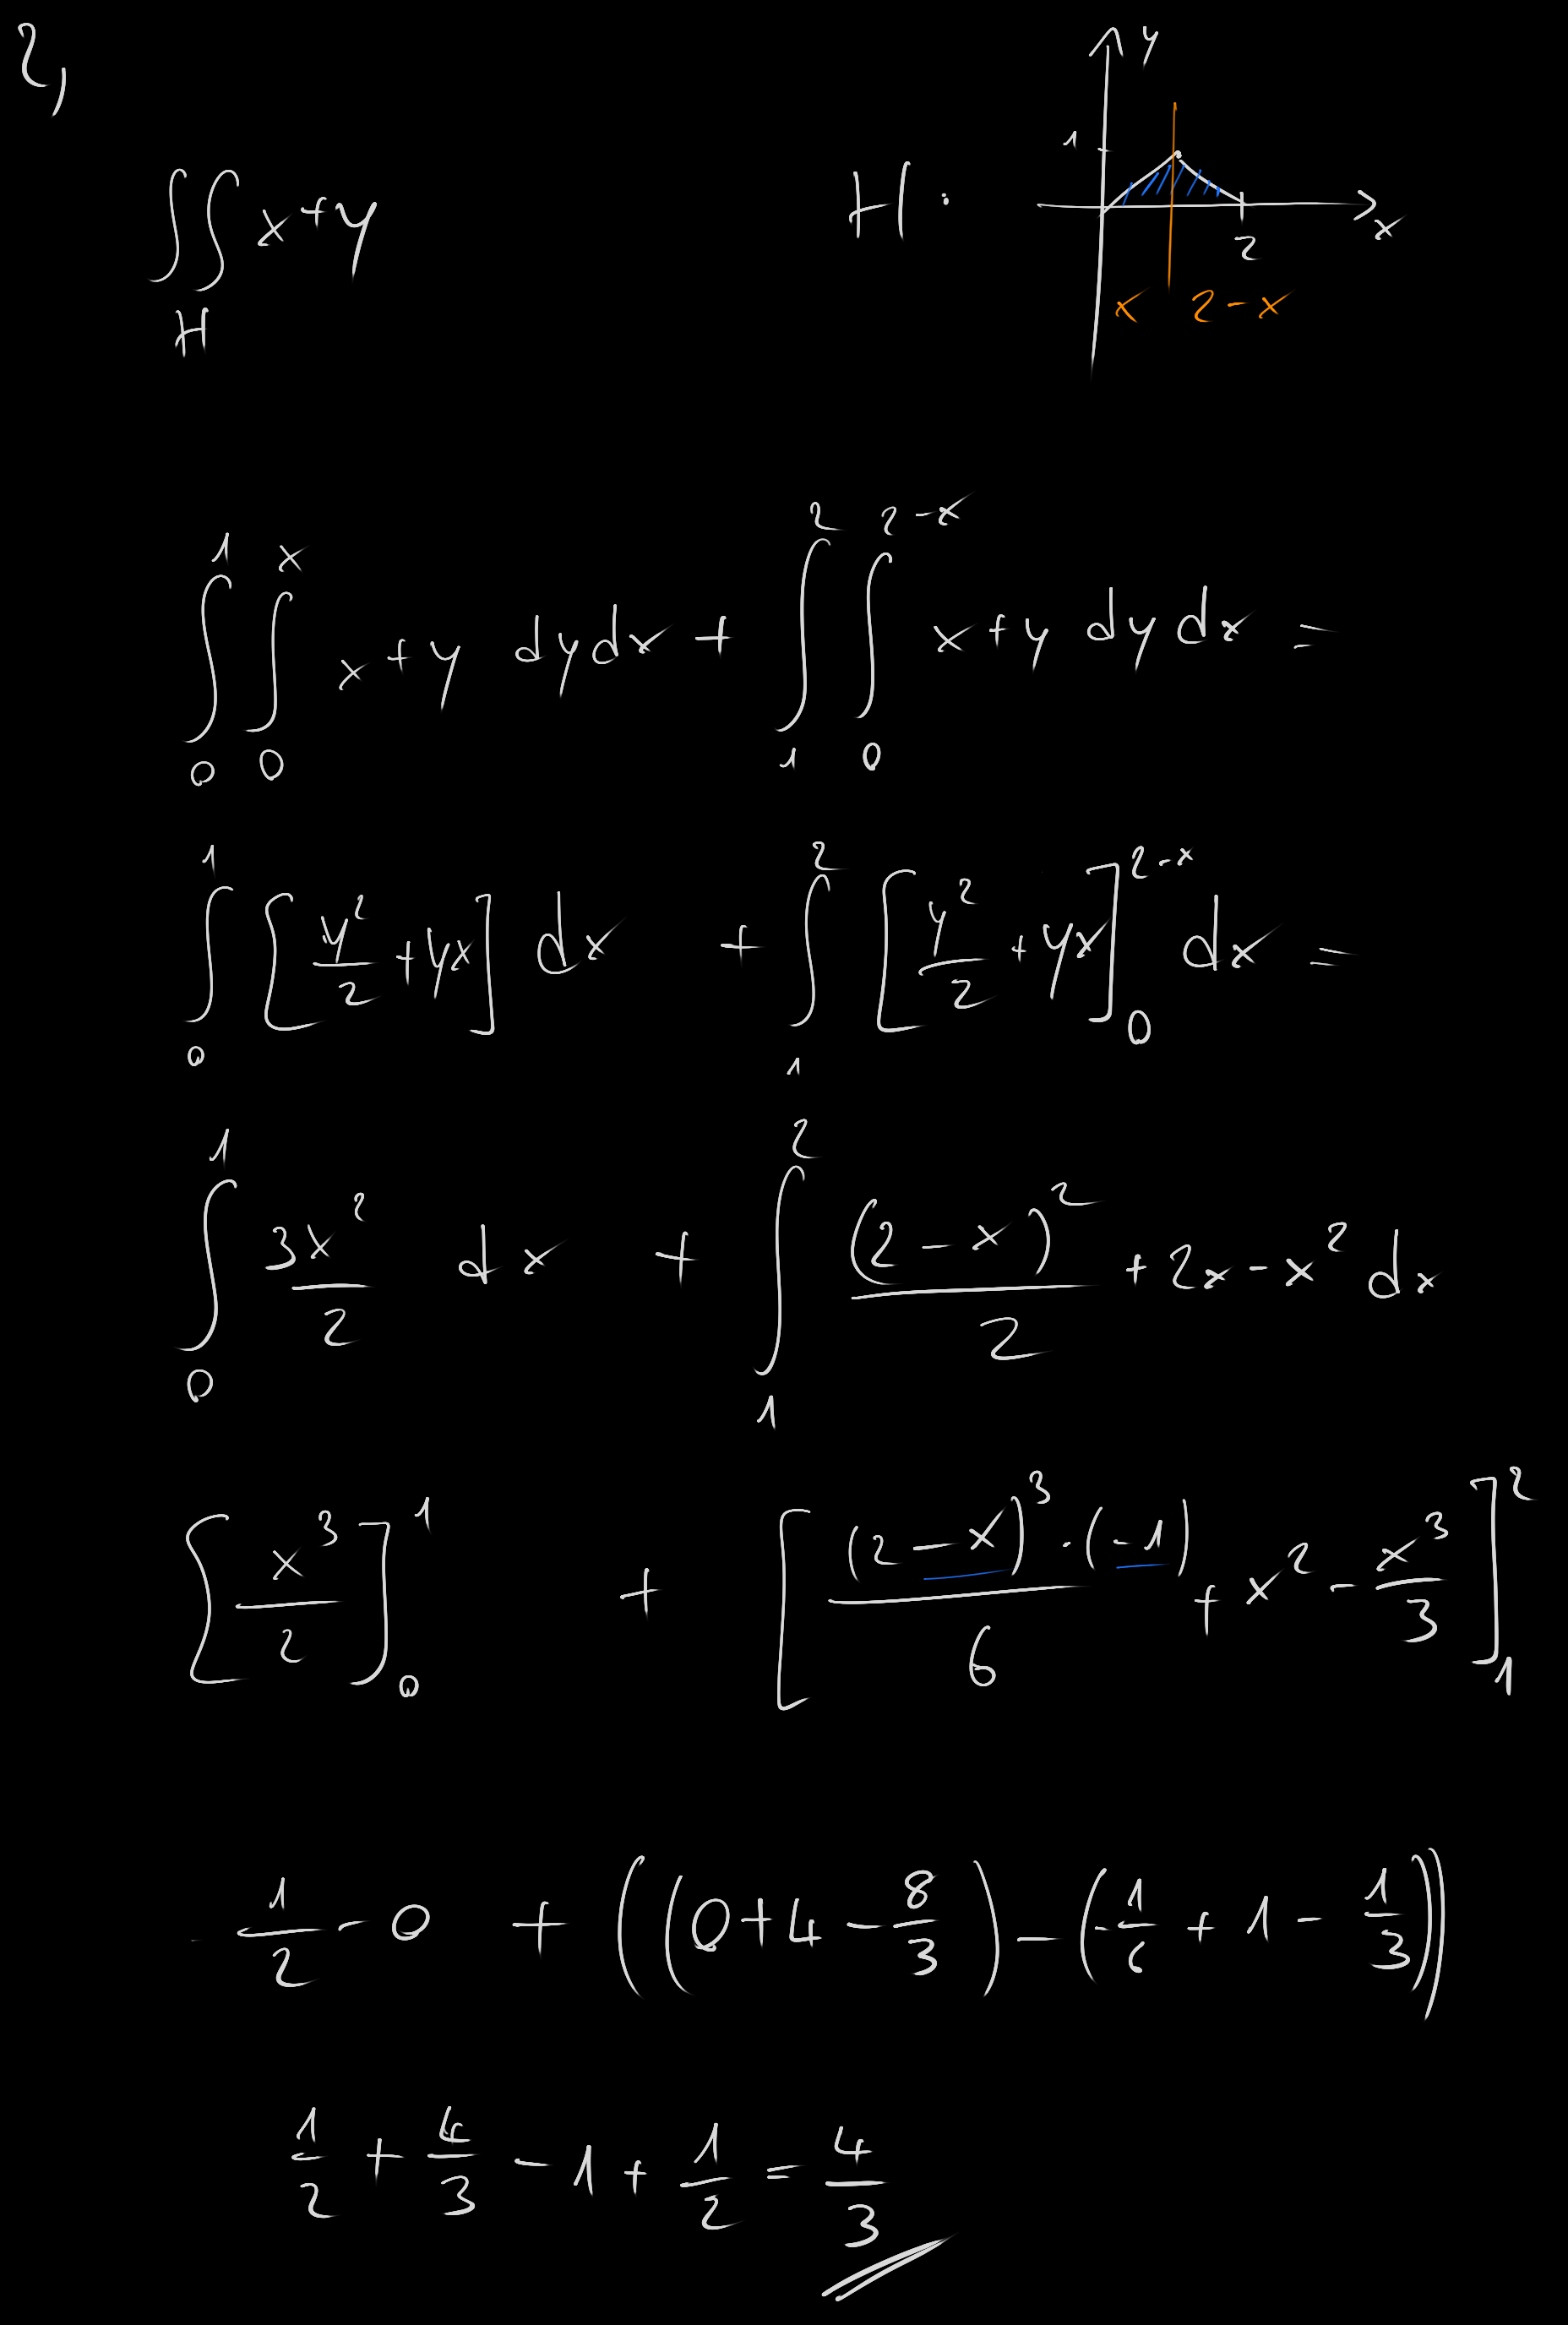 2,
∬_H x+y    H:    y    1    2    x    x    2-x
∫_0^1 ∫_0^x x+y dydx + ∫_1^2 ∫_0^{2-x} x+y dydx =
∫_0^1 [y²/2 + yx] dx + ∫_1^2 [y²/2 + yx]_0^{2-x} dx =
∫_0^1 3x²/2 dx + ∫_1^2 (2-x)²/2 + 2x - x² dx
[x³/2]_0^1 + [(2-x)³·(-1)/6 + x² - x³/3]_1^2
1/2 - 0 + ((0+4-8/3) - (-1/6 + 1 - 1/3))
1/2 + 4/3 - 1 + 1/2 = 4/3